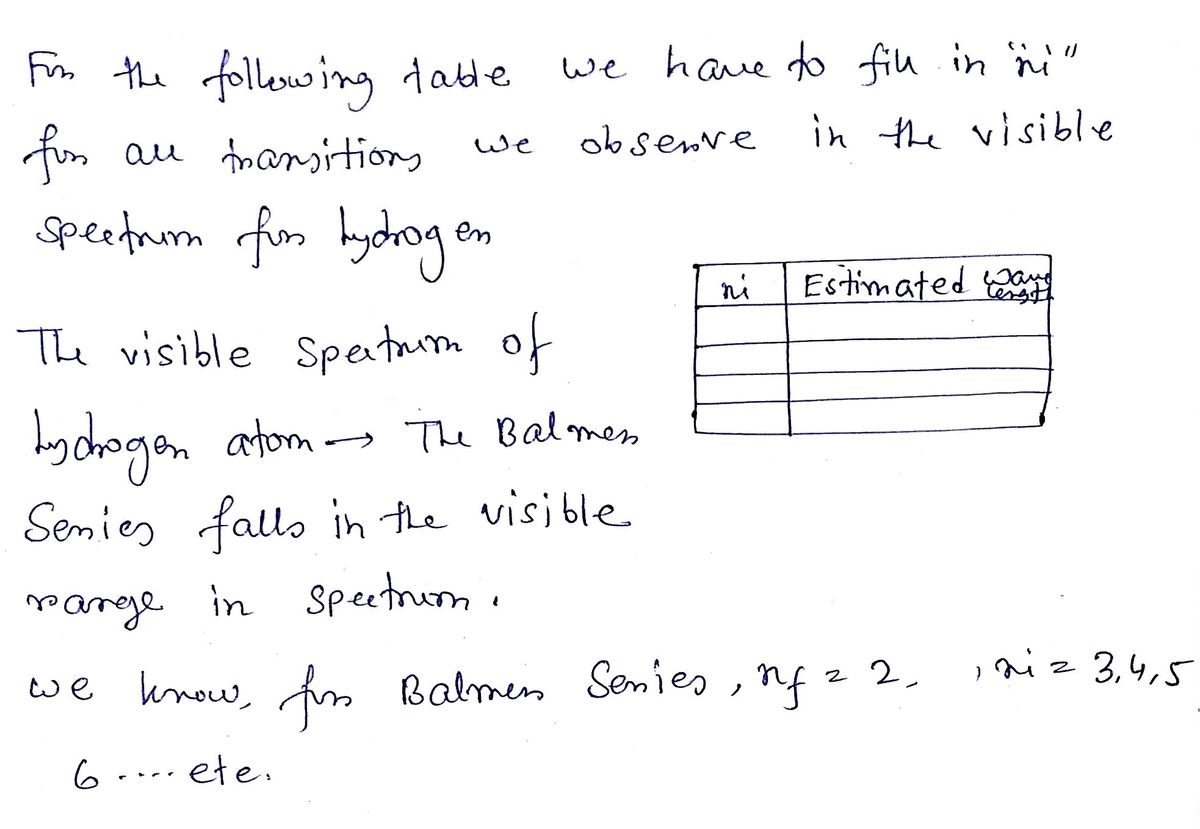 For the following table we have to fill in "ni"
for all transitions we observe in the visible
spectrum for hydrogen
ni Estimated wave length
The visible spectrum of
hydrogen atom → The Balmer
Series falls in the visible
range in spectrum.
we know, for Balmer Series, nf = 2, , ni = 3,4,5
6 ..... etc.